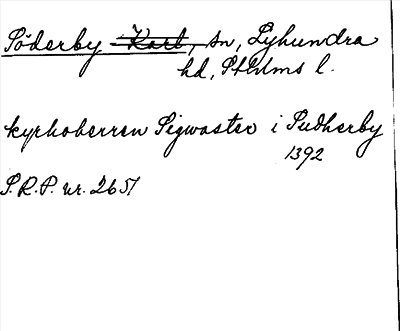 Söderby Karl, sn, Lyhundra
hd, Sthlms l.
kyrkoherren Sigwaster i Sudherby
1392
S.R.P. nr. 2651